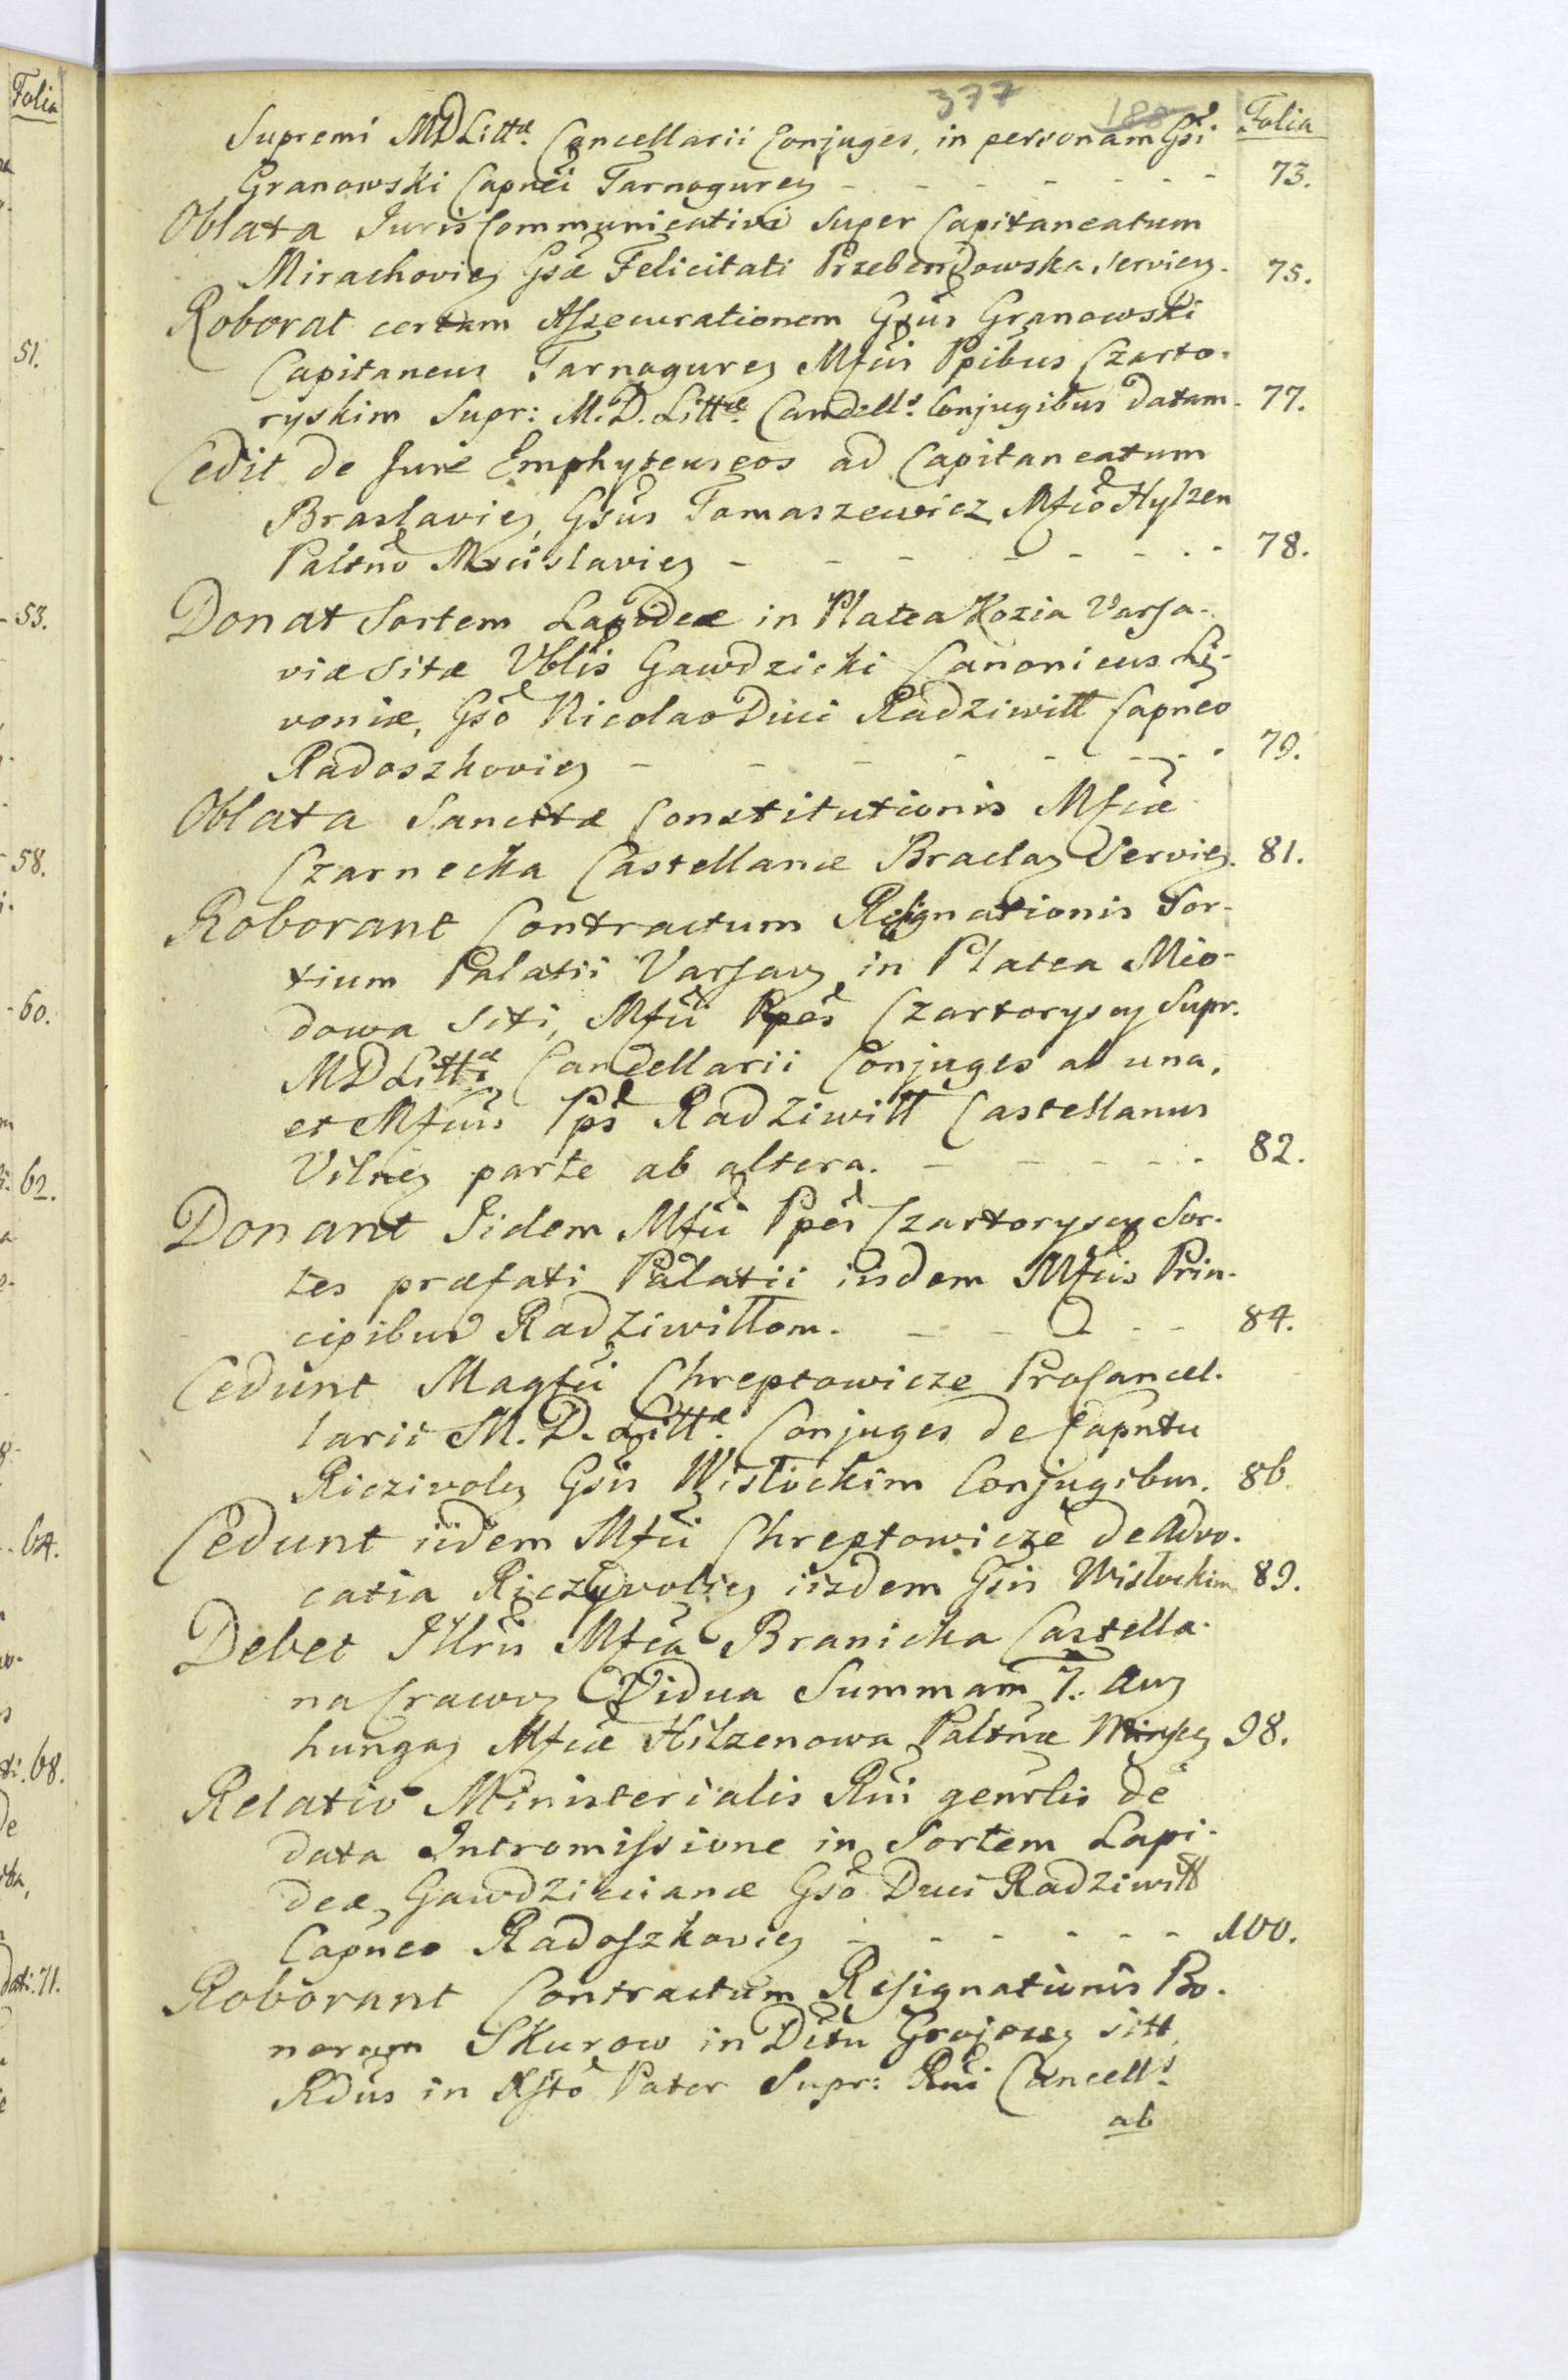 377 188
Folia
Supremi MDLittæ Cancellarii Conjuges, in personam Gsi
Granowski Capnei Tarnogureñ - - - - - - - 73.
Oblata Juris Communicativi super Capitaneatum
Mirachovieñ Gsæ Felicitati Przebendowska servieñ. 75.
Roborat certam Assecurationem Gsus Granowski
Capitaneus Tarnogureñ Mfcis Ppibus Czarto-
ryskim Supr: M.D. Littæ Cancells Conjugibus datam. 77.
Cedit de Jure Emphyteuseos ad Capitaneatum
Braslavieñ, Gsus Tomaszewicz Mfco Hylzen
Paltno Mscislavieñ - - - - - - - 78.
Donat Sortem Lapideæ in Platea Kozia Varsa-
viæ sitæ Vblis Gawdzicki Canonicus Li-
voniæ, Gso Nicolao Duci Radziwiłł Capneo
Radoszkovieñ - - - - - - - 79.
Oblata Sancitæ Constitutionis Mfcæ
Czarnecka Castellanæ Braclaꝫ Servieñ. 81.
Roborant Contractum Resignationis Sor-
tium Palatii Varsavꝫ in Platea Mio-
dowa siti, Mfci Ppes Czartoryscy Supr.
MDLittæ Cancellarii Conjuges ab una,
et Mfcus Pps Radziwiłł Castellanus
Vilneñ parte ab altera. - - - - - 82.
Donant Iidem Mfci Ppes Czartoryscy Sor-
tes præfati Palatii iisdem Mfcis Prin-
cipibus Radziwiłłom. - - - - - 84.
Cedunt Magfci Chreptowicze ProCancel-
larii M. D. Littæ Conjuges de Capntu
Riczivoleñ Gsis Wisłockim Conjugibus. 86.
Cedunt iidem Mfci Chreptowicze de Advo-
catia Riczyvolieñ iisdem Gsis Wisłockim 89.
Debet Illris Mfca Branicka Castella-
na Cracovꝫ Vidua Summam 7. Auꝫ
hungaꝫ Mfcæ Hilzenowa Paltnæ Minsceñ 98.
Relatio Ministerialis Rni genrlis de
data Intromissione in Sortem Lapi-
deæ, Gawdzicianæ Gso Duci Radziwiłł
Capneo Radoszkovieñ - - - - - - - 100.
Roborant Contractum Resignationis Bo-
norum Skurow in Dictu Grojeceñ sitt,
Rdus in Xsto Pater Supr: Rni Cancells
ab
51.
53.
58.
60.
62.
64.
68.
71.